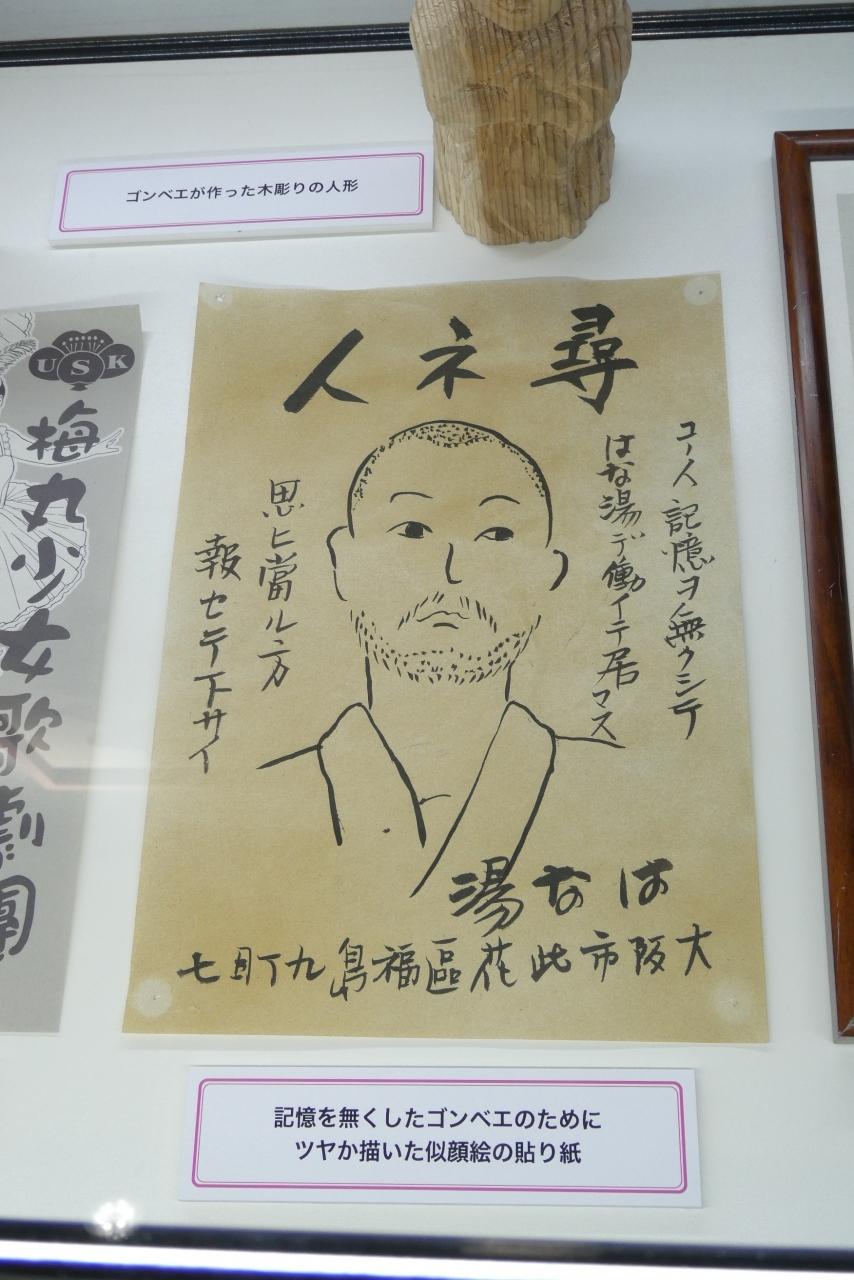 ゴンベエが作った木彫りの人形
尋ネ人
コノ人記憶ヲ無クシテ
はな湯デ働イテ居マス
思ヒ當ル方
報セテ下サイ
はな湯
大阪市此花區福島九丁目七
USK
梅丸少女歌劇團
記憶を無くしたゴンベエのために
ツヤか描いた似顔絵の貼り紙